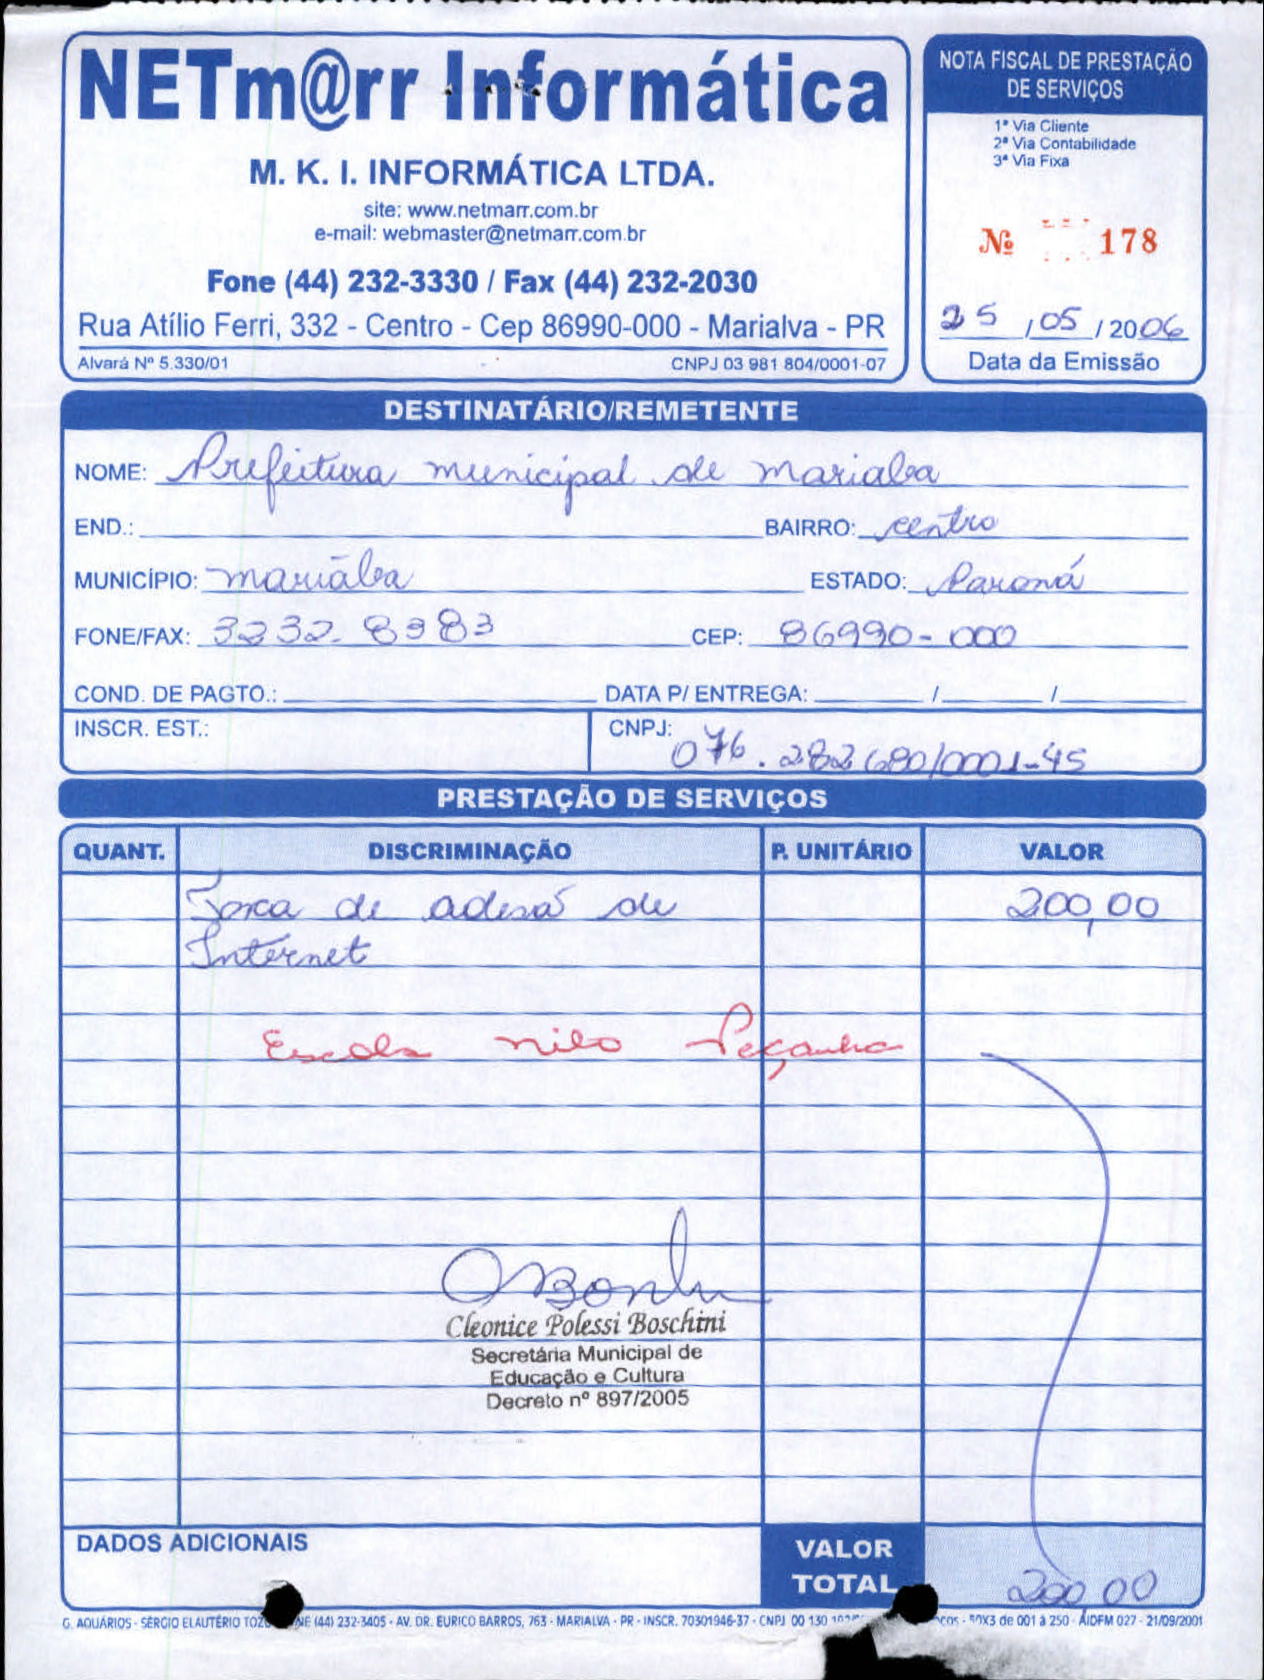 NETm@rr Informática
M. K. I. INFORMÁTICA LTDA.
site: www.netmarr.com.br
e-mail: webmaster@netmarr.com.br
Fone (44) 232-3330 / Fax (44) 232-2030
Rua Atílio Ferri, 332 - Centro - Cep 86990-000 - Marialva - PR
Alvará Nº 5.330/01 CNPJ 03 981 804/0001-07
NOTA FISCAL DE PRESTAÇÃO
DE SERVIÇOS
1ª Via Cliente
2ª Via Contabilidade
3ª Via Fixa
Nº 178
25 / 05 / 2006
Data da Emissão
DESTINATÁRIO/REMETENTE
NOME: Prefeitura municipal de Marialva
END.: BAIRRO: centro
MUNICÍPIO: Marialva ESTADO: Paraná
FONE/FAX: 3232-8383 CEP: 86990-000
COND. DE PAGTO.: DATA P/ ENTREGA: / /
INSCR. EST.: CNPJ: 076.282680/0001-45
PRESTAÇÃO DE SERVIÇOS
QUANT. DISCRIMINAÇÃO P. UNITÁRIO VALOR
Taxa de adesã de 200,00
Internet
Escola nilo Peçanha
Cleonice Polessi Boschini
Secretária Municipal de
Educação e Cultura
Decreto nº 897/2005
DADOS ADICIONAIS
VALOR
TOTAL 200,00
G. AQUÁRIOS - SÉRGIO ELAUTÉRIO (44) 232-3405 - AV. DR. EURICO BARROS, 763 - MARIALVA - PR - INSCR. 70301946-37 - CNPJ 00 130 - 50X3 de 001 à 250 - AIDFM 027 - 21/09/2001